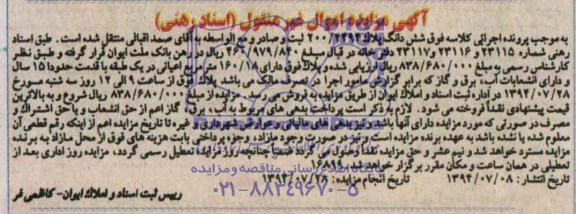 آگهی مزایده اموال غیر منقول (اسناد رهنی)
به موجب پرونده اجرائی کلاسه فوق شش دانگ پلاک ۲۳۹۴/ ۲۰۰ ثبت و صادر و مع الواسطه به آقای صمد اقبالی منتقل شده است. طبق اسناد
رهنی شماره ۲۳۱۱۵ و ۲۳۱۱۶ و ۲۳۱۱۷ دفترخانه در قبال مبلغ ۴۶۲/۹۷۹/۸۴۰ ریال در رهن بانک ملت ایران قرار گرفته و طبق نظر
کارشناس رسمی به مبلغ ۸۳۸/۶۸۰/۰۰۰ ریال ارزیابی شده، پلاک فوق دارای ۱۶۰/۱۸ متر مربع اعیانی در یک طبقه با قدمت حدودا ۱۵ سال
و دارای انشعابات آب برق و گاز که برابر گزارش مامور اجرا در تصرف مالکین می باشد پلاک فوق از ساعت ۹ الی ۱۲ روز سه شنبه مورخ
۱۳۹۴/۰۷/۲۸ در اداره ثبت اسناد و املاک ایران از طریق مزایده به فروش می رسد. مزایده از مبلغ ۸۳۸/۶۸۰/۰۰۰ ریال شروع و به بالاترین
قیمت پیشنهادی نقداً فروخته می شود. لازم به ذکر است پرداخت بدهی های مربوط به آب، برق، گاز اعم از حق انشعاب و یا حق اشتراک و
مصرف در صورتی که مورد مزایده دارای آنها باشد و نیز بدهی های مالیاتی و عوارض شهرداری و غیره تا تاریخ مزایده اعم از اینکه رقم قطعی آن
معلوم شده یا نشده باشد به عهده برنده مزایده است و نیز در صورت وجود مازاد، وجوه پرداختی بابت هزینه های فوق از محل مازاد به برنده
مزایده مسترد خواهد شد و نیم عشر و حق مزایده نقداً وصول می گردد ضمنا چنانچه روز مزایده تعطیل رسمی گردد، مزایده روز اداری بعد از
تعطیلی در همان ساعت و مکان مقرر برگزار خواهد شد. ۱۶۸۹۶
تاریخ انتشار: ۱۳۹۴/۰۷/۰۸ تاریخ انجام مزایده: ۱۳۹۴/۰۷/۲۸
رییس ثبت اسناد و املاک ایران- کاظمی فر
پایگاه اطلاع رسانی مناقصه و مزایده
۰۲۱-۸۸۳۴۹۶۷۰-۵